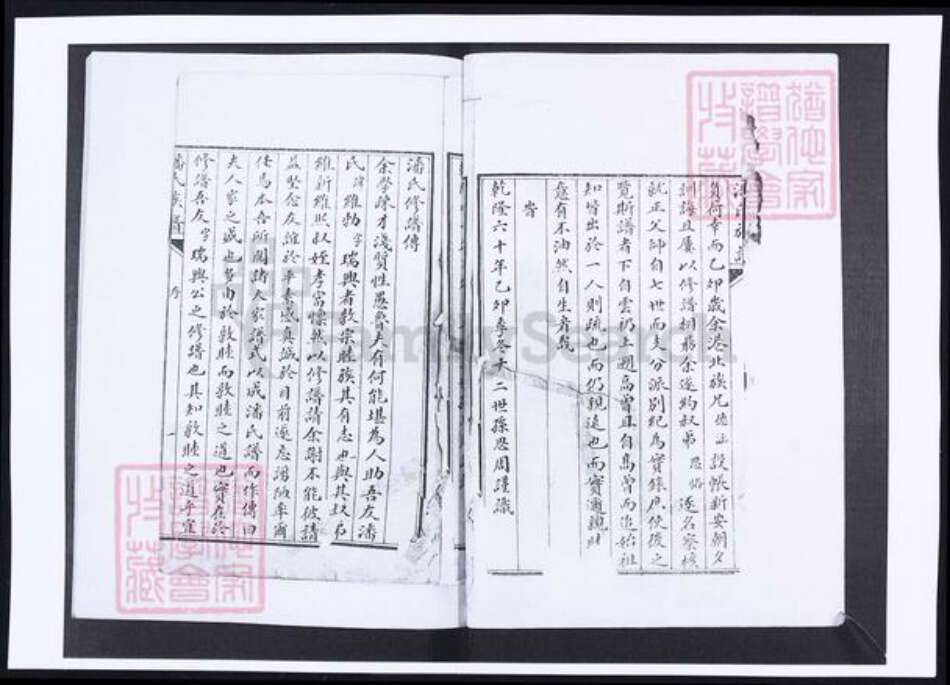 負荷幸而乙卯歲余港北族兄 設帳新安朝夕
訓誨且屢以修譜相勗余遂約叔弟 遂名察核
就正父師自七世而支分派別紀為實錄庶使後之
覽斯譜者下自雲仍上遡高曾且自高曾而追始祖
知皆出於一人則疏也而仍親遠也而實邇親
意有不油然自生者哉
旹
乾隆六十年乙卯季冬十二世孫恩周謹識
潘氏修譜傳
余學疎才淺質性愚魯夫有何能堪為人助吾友潘
氏諱維物字瑞興者敦宗睦族其有志也與其叔弟
維新維熙叔姪孝富慄然以修譜請余謝不能彼請
益堅念友誼於平素感真誠於目前遂忘謭陋率爾
任焉本吾所閱諸大家譜式以成潘氏譜而作傳曰
夫人家之盛也多由於敦睦而敦睦之道也實在於
修譜吾友字瑞興公之修譜也其知敦睦之道乎宜
潘氏族譜
序
一
譜學會
收藏
FamilySearch